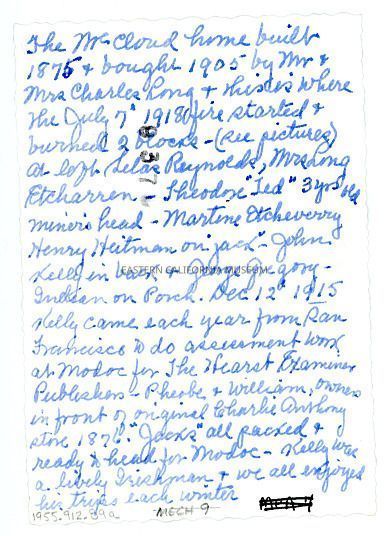 The McCloud home built
1875 & bought 1905 by Mr &
Mrs Charles Long & this is where
the July 7" 1918 fire started &
burned 2 blocks - (see pictures)
at left. Silas Reynolds, Mrs Long
Etcharren - Theodore "Ted" 3 yrs old
miner's head - Martine Etcheverry
Henry Heitman on "jack" - John
Kelly in
EASTERN CALIFORNIA MUSEUM
Indian on Porch. Dec 12" 1915
Kelly came each year from San
Francisco to do assessment work
at Modoc for The Hearst Examiner
Publishers - Pheobe & William, owners
in front of original Charlie Anthony
store 1876. "Jacks" all packed &
ready to head for Modoc - Kelly was
a lively Irishman & we all enjoyed
his trips each winter
1955.912.89a
MECH 9